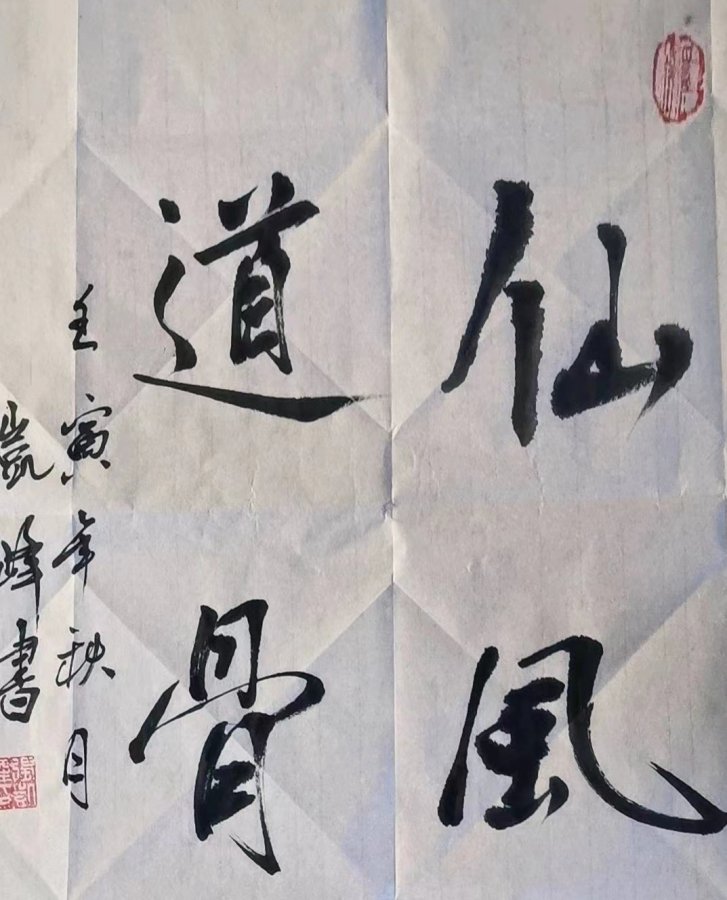 仙風
道骨
壬寅年秋月
凱峰書